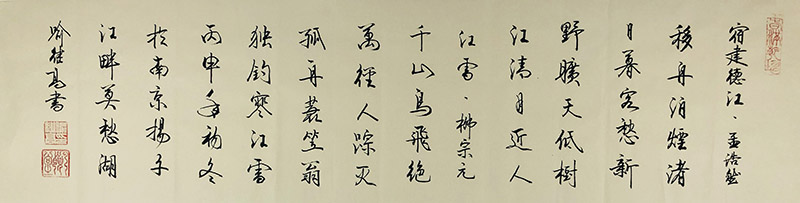 宿建德江·孟浩然
移舟泊煙渚
日暮客愁新
野曠天低樹
江清月近人
江雪·柳宗元
千山鳥飛絕
萬徑人踪灭
孤舟蓑笠翁
独钓寒江雪
丙申年初冬
於南京揚子
江畔莫愁湖
喻継高書